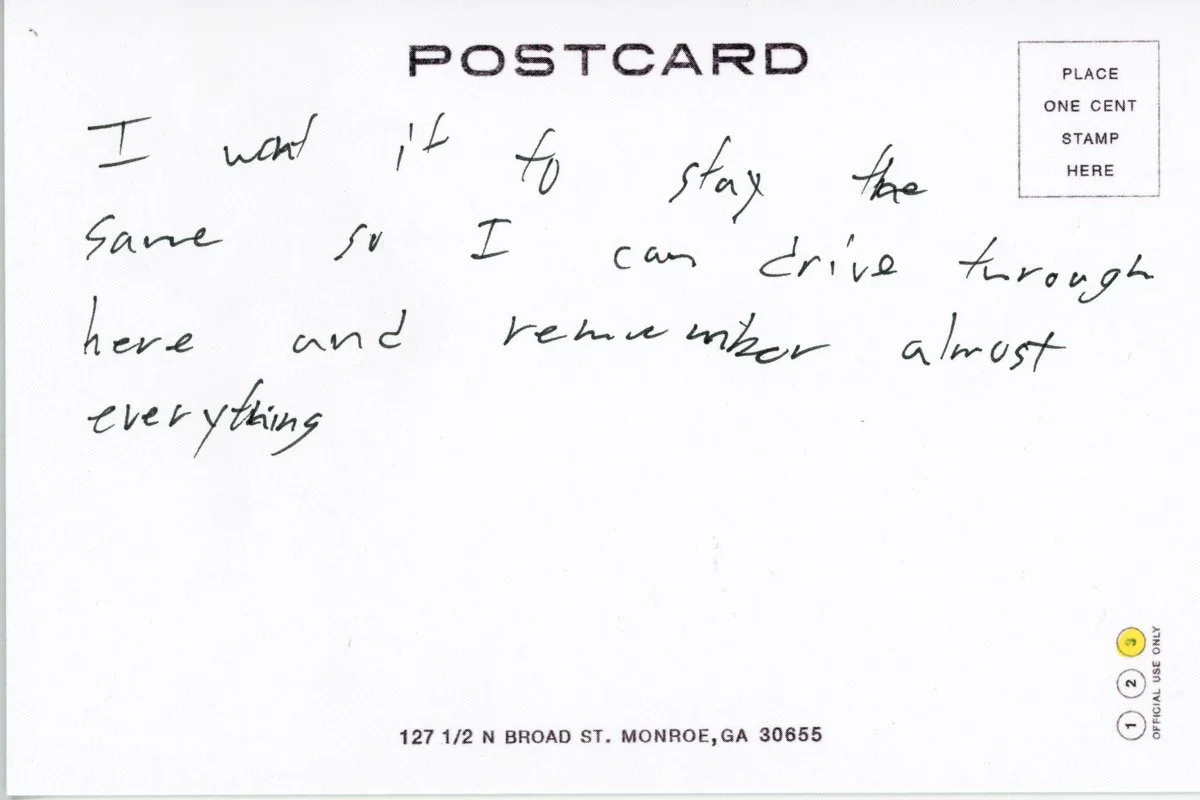 POSTCARD
PLACE
ONE CENT
STAMP
HERE
I want it to stay the
same so I can drive through
here and remember almost
everything
127 1/2 N BROAD ST. MONROE, GA 30655
1 2 3
OFFICIAL USE ONLY